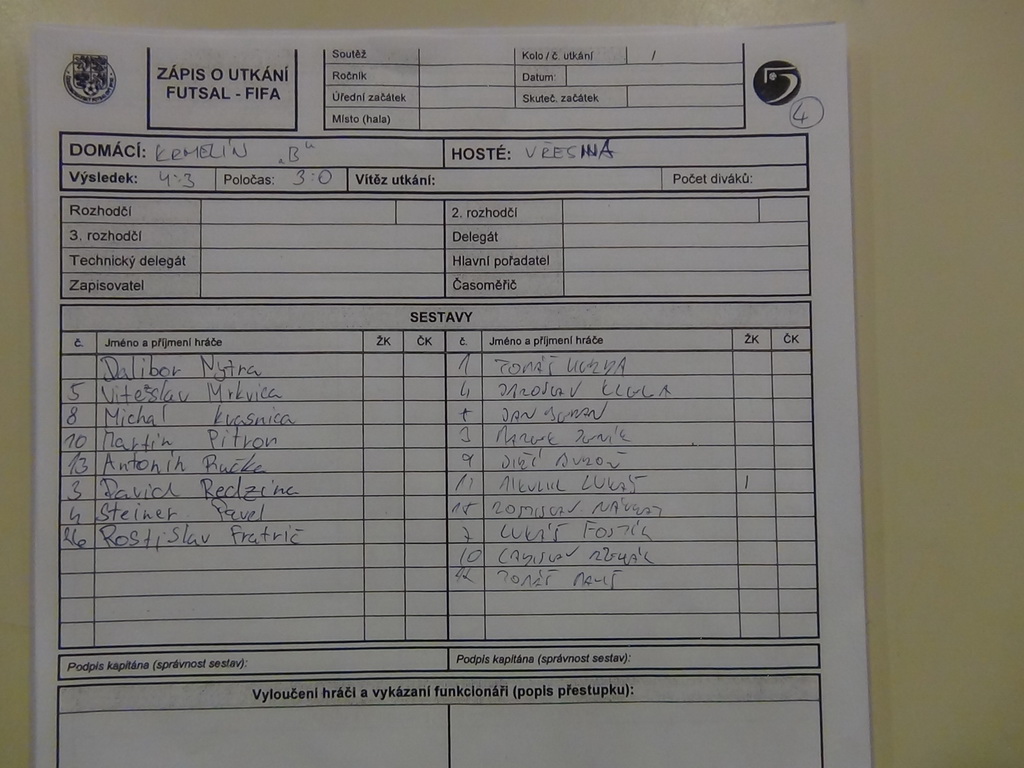 ZÁPIS O UTKÁNÍ
FUTSAL - FIFA
Soutěž Kolo / č. utkání /
Ročník Datum:
Úřední začátek Skuteč. začátek
Místo (hala)
4
DOMÁCÍ: KRMELÍN „B" HOSTÉ: VŘESINA
Výsledek: 4:3 Poločas: 3:0 Vítěz utkání: Počet diváků:
Rozhodčí 2. rozhodčí
3. rozhodčí Delegát
Technický delegát Hlavní pořadatel
Zapisovatel Časoměřič
SESTAVY
č. Jméno a příjmení hráče ŽK ČK č. Jméno a příjmení hráče ŽK ČK
Dalibor Nytra 1 TOMÁŠ
5 Vítězslav Mrkvica 4 JAROSLAV
8 Michal Kvasnica DAN
10 Martin Pitron 3 MAREK
13 Antonín Ručka 9 JIŘÍ
3 David Redzina 11 LUKÁŠ I
4 Steiner Pavel 15 ROSTISLAV
26 Rostislav Fratrič 7 LUKÁŠ
10 LADISLAV
TOMÁŠ
Podpis kapitána (správnost sestav): Podpis kapitána (správnost sestav):
Vyloučení hráči a vykázaní funkcionáři (popis přestupku):